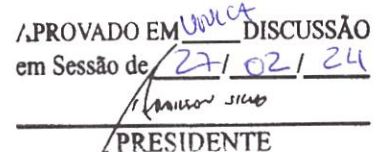 APROVADO EM ÚNICA DISCUSSÃO
em Sessão de 27/ 02 / 24
PRESIDENTE